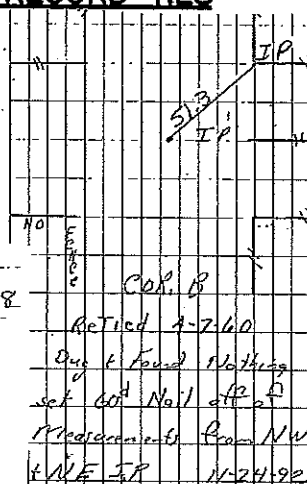 IP
51.3
IP
NO
Fence
8
COR. B
ReTied 4-7-60
Dug & Found Nothing
set 60d Nail off of
Measurements From NW
& NE IP 11-24-92